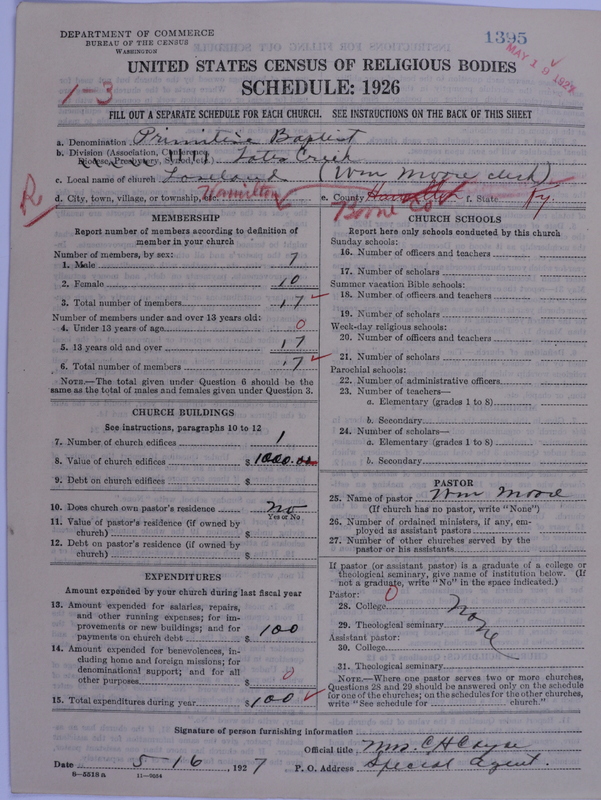 DEPARTMENT OF COMMERCE
BUREAU OF THE CENSUS
WASHINGTON
1395
MAY 19 1927
UNITED STATES CENSUS OF RELIGIOUS BODIES
SCHEDULE: 1926
1-3
FILL OUT A SEPARATE SCHEDULE FOR EACH CHURCH. SEE INSTRUCTIONS ON THE BACK OF THIS SHEET
a. Denomination Primitive Baptist
b. Division (Association, Conference, Diocese, Presbytery, Synod, etc.) Tates Creek
c. Local name of church (Wm Moore clerk)
R
d. City, town, village, or township, etc. Hamilton e. County f. State Ky.
Boone Co
MEMBERSHIP
Report number of members according to definition of member in your church
Number of members, by sex:
1. Male 7
2. Female 10
3. Total number of members 17
Number of members under and over 13 years old:
4. Under 13 years of age 0
5. 13 years old and over 17
6. Total number of members 17
NOTE.—The total given under Question 6 should be the same as the total of males and females given under Question 3.
CHURCH BUILDINGS
See instructions, paragraphs 10 to 12
7. Number of church edifices 1
8. Value of church edifices $ 1000.00
9. Debt on church edifices $
10. Does church own pastor's residence No
Yes or No
11. Value of pastor's residence (if owned by church) $
12. Debt on pastor's residence (if owned by church) $
EXPENDITURES
Amount expended by your church during last fiscal year
13. Amount expended for salaries, repairs, and other running expenses; for improvements or new buildings; and for payments on church debt $ 100
14. Amount expended for benevolences, including home and foreign missions; for denominational support; and for all other purposes $ 0
15. Total expenditures during year $ 100
CHURCH SCHOOLS
Report here only schools conducted by this church
Sunday schools:
16. Number of officers and teachers
17. Number of scholars
Summer vacation Bible schools:
18. Number of officers and teachers
19. Number of scholars
Week-day religious schools:
20. Number of officers and teachers
21. Number of scholars
Parochial schools:
22. Number of administrative officers
23. Number of teachers—
a. Elementary (grades 1 to 8)
b. Secondary
24. Number of scholars—
a. Elementary (grades 1 to 8)
b. Secondary
PASTOR
25. Name of pastor Wm Moore
(If church has no pastor, write "None")
26. Number of ordained ministers, if any, employed as assistant pastors
27. Number of other churches served by the pastor or his assistants
If pastor (or assistant pastor) is a graduate of a college or theological seminary, give name of institution below. (If not a graduate, write "No" in the space indicated.)
Pastor: 0
28. College None
29. Theological seminary
Assistant pastor:
30. College
31. Theological seminary
NOTE.—Where one pastor serves two or more churches, Questions 28 and 29 should be answered only on the schedule for one of the churches; on the schedules for the other churches, write "See schedule for church."
Signature of person furnishing information
Official title Mrs. C H Cayse
Date 5-16, 1927 P. O. Address Special Agent.
8-5518 a 11-9684